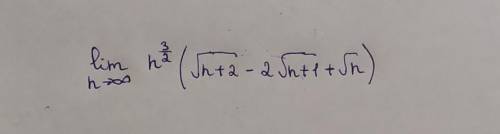 lim n→∞ n^{3/2} (√(n+2) - 2√(n+1) + √n)